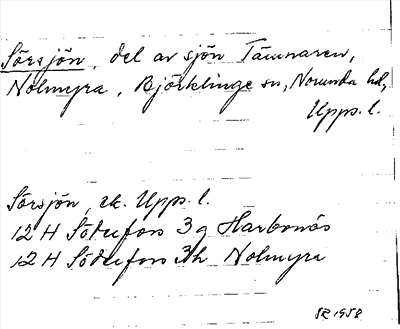 Sörsjön, del av sjön Tämnaren,
Nolmyra, Björklinge sn, Norunda hd,
Upps. l.
Sörsjön, ek. Upps. l.
12 H Söderfors 3 g Harbonäs
12 H Söderfors 3h Nolmyra
SR 1958